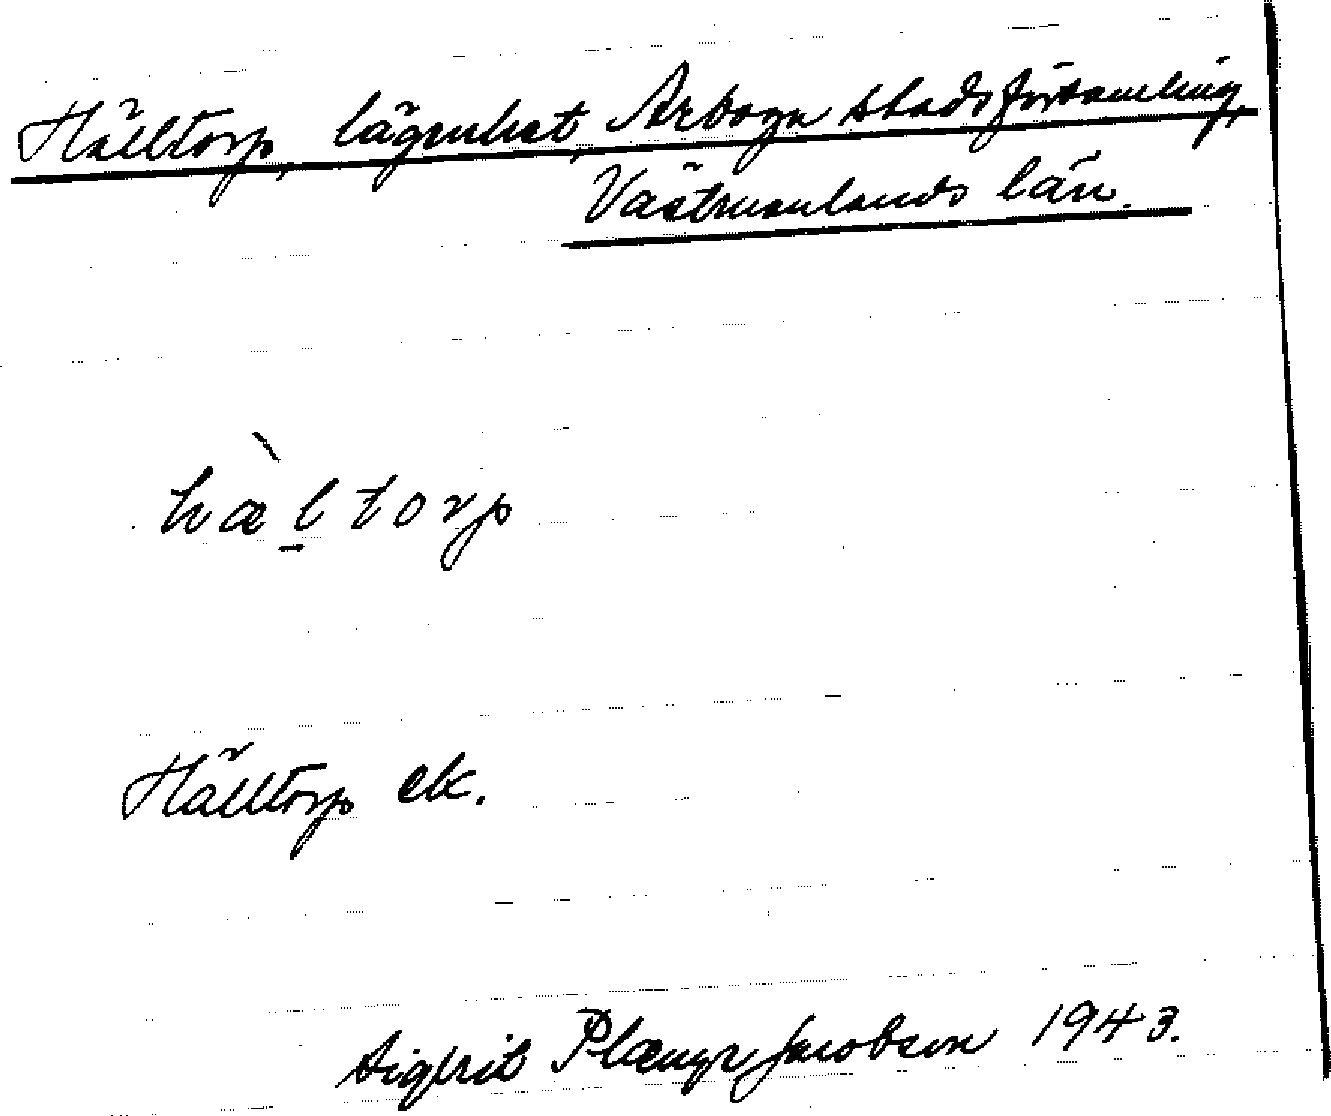 Hälltorp, lägenhet, Arboga stadsförsamling,
Västmanlands län.
hæ̀l̠torp
Hälltorp ek.
Sigfrid Jacobson 1943.